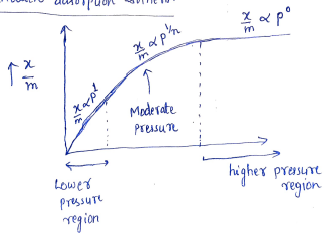 adsorption
x/m ∝ p⁰
x/m ∝ p^1/n
↑ x/m
x/m ∝ p¹
Moderate
pressure
Lower
pressure
region
higher pressure
region